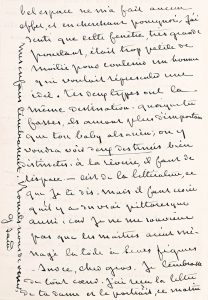 bel espace ne m'a fait aucun
effet et en cherchant pourquoi, j'ai
senti que cette fenêtre, très grande
pourtant, était trop petite de
moitié pour contenir un homme
qui voudrait représenter une
idée. Les deux types ont la
même destination. quoique tu
fasses, ils auront plus d'importance
que ton baby alsacien, on y
voudra voir deux destinées bien
distinctes. à la rêverie, il faut de
l'espace — c'est de la littérature, ce
que je te dis. mais il faut croire
qu'il y a du vrai pittoresque
aussi, car je ne me souviens
pas que les maîtres aient mé-
nagé la toile à leurs figures
Sur ce, cher gros, je t'embrasse
de tout cœur. J'ai reçu la lettre
de ta dame et le portrait ce matin